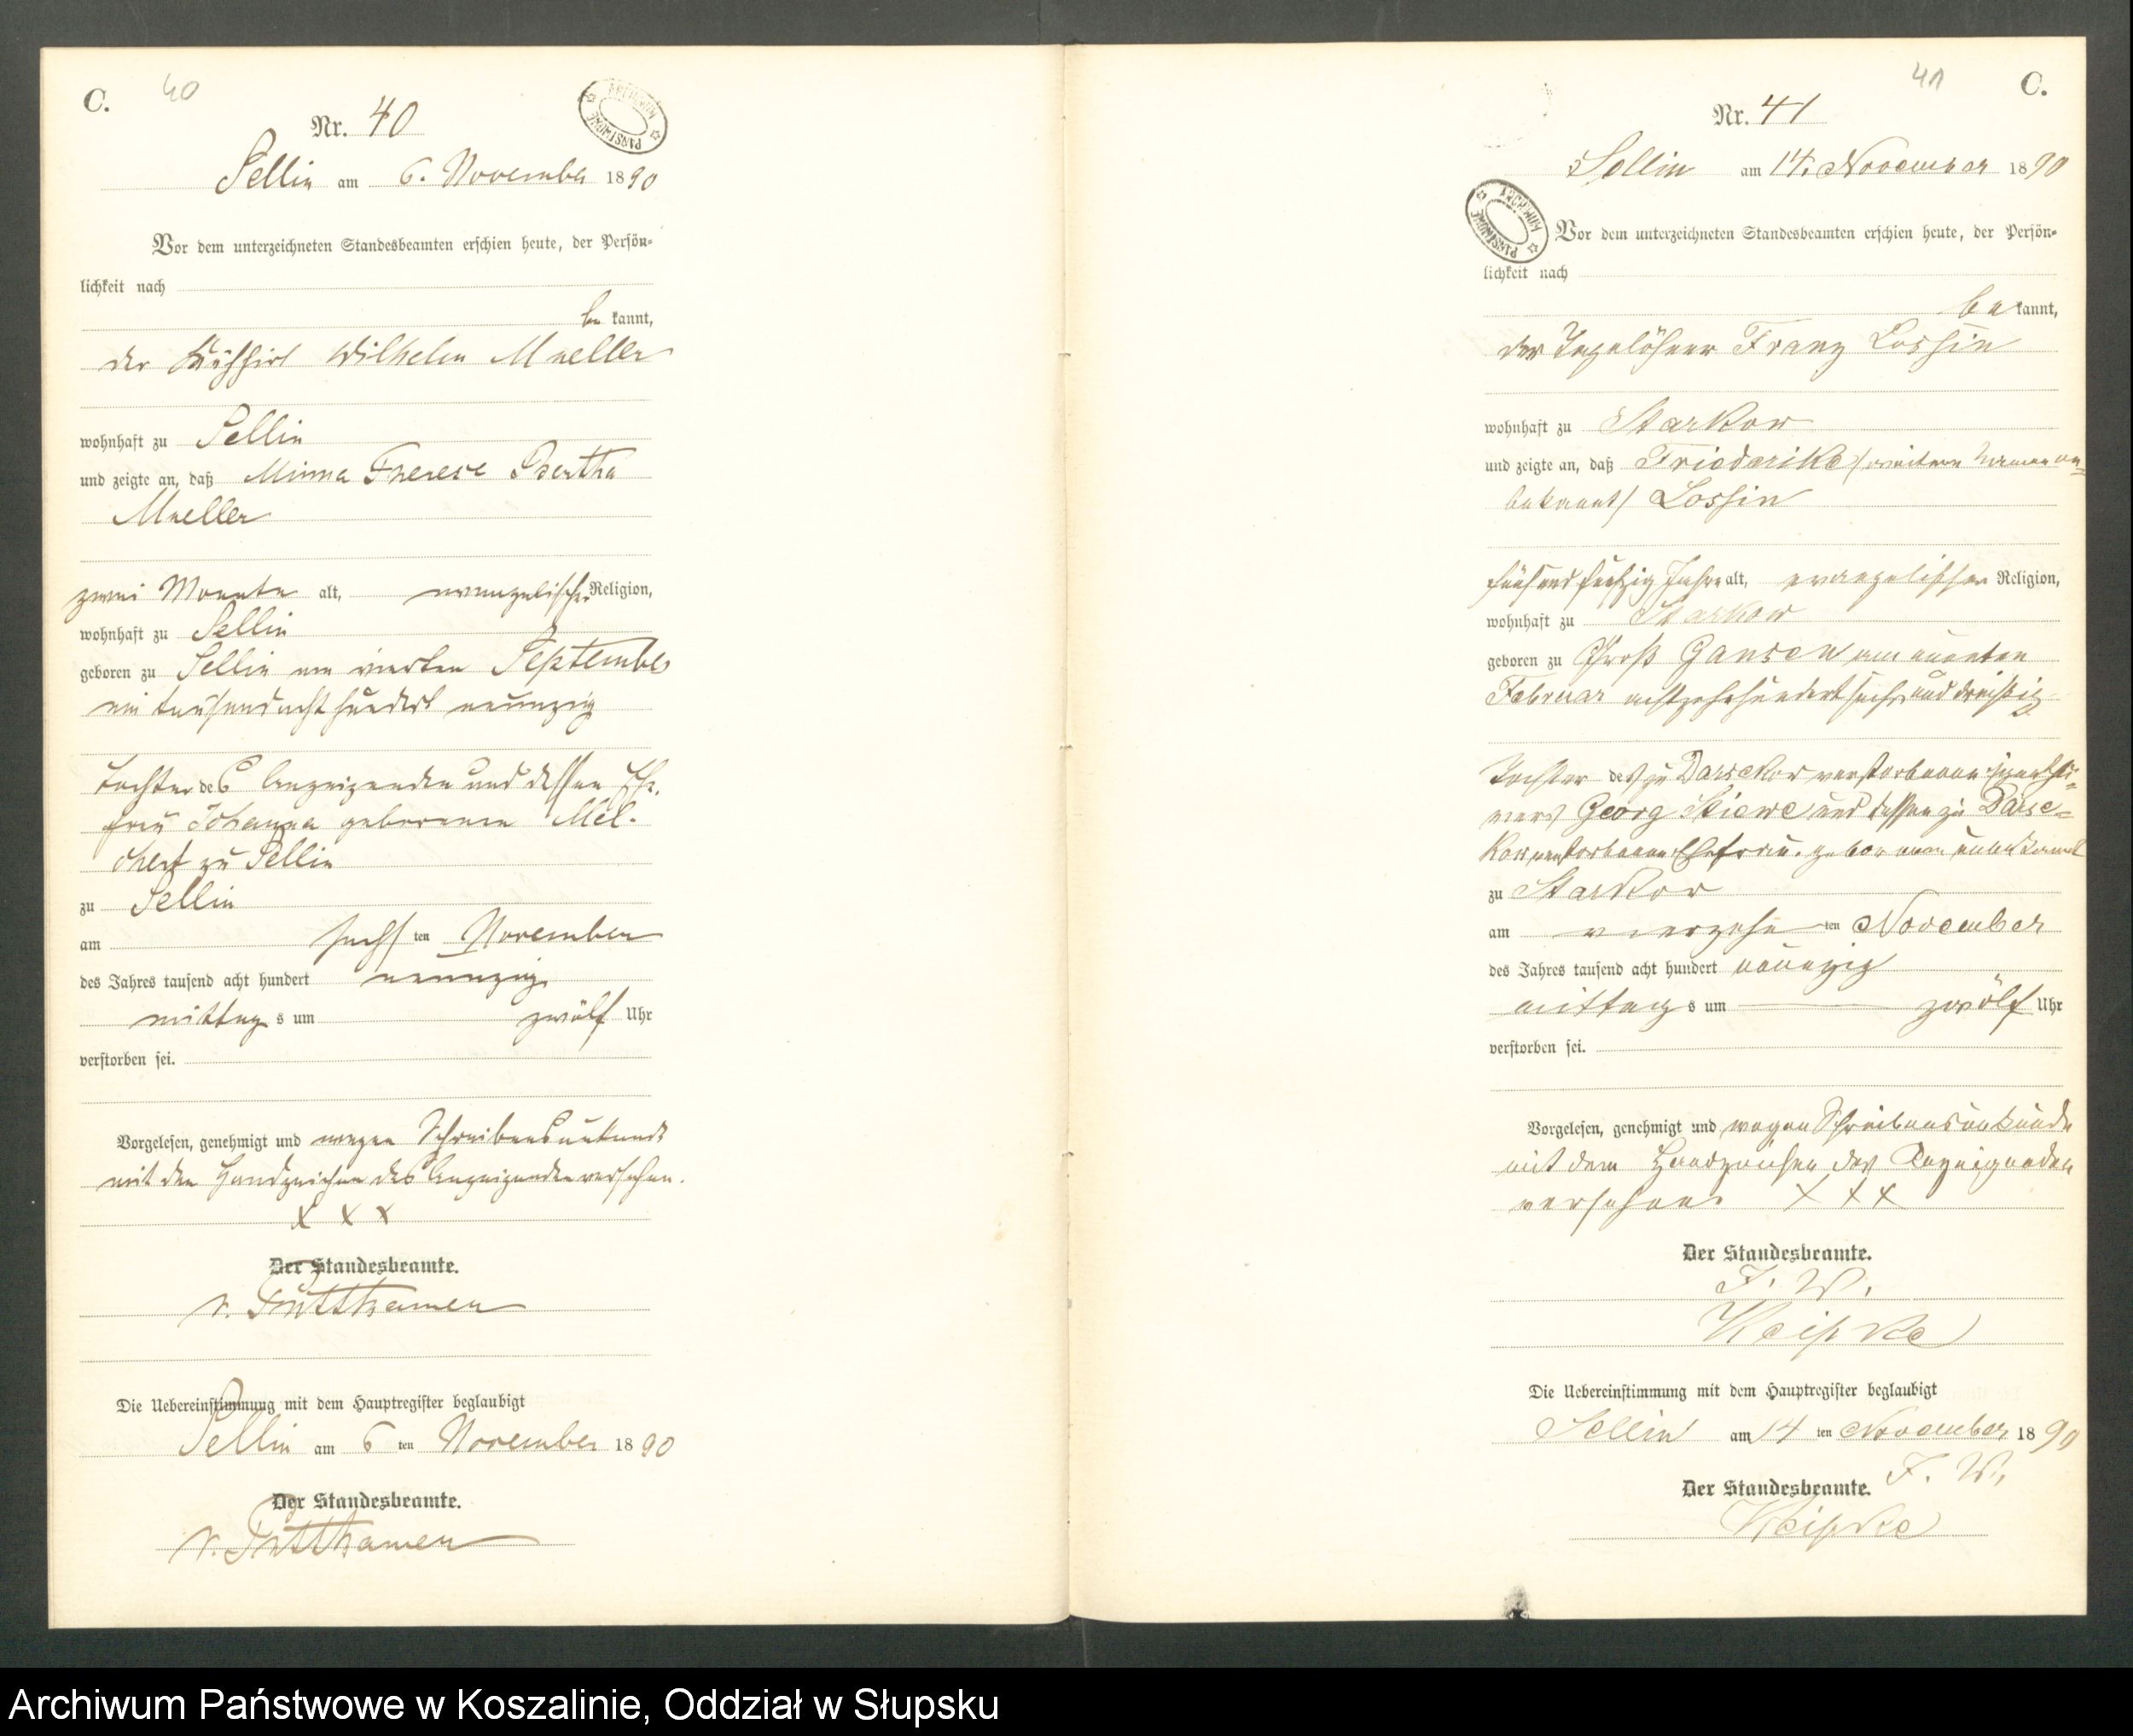 C.
40
Nr. 40
ARCHIWUM PAŃSTWOWE
Sellin am 6. November 1890
Vor dem unterzeichneten Standesbeamten erschien heute, der Persön-
lichkeit nach
be kannt,
der Kuhhirt Wilhelm Mueller
wohnhaft zu Sellin
und zeigte an, daß Minna Therese Bertha
Mueller
zwei Monate alt, evangelischer Religion,
wohnhaft zu Sellin
geboren zu Sellin am vierten September
ein tausend acht hundert neunzig
Tochter des Anzeigenden und dessen Ehe-
frau Johanna geborenen Mel-
chert zu Sellin
zu Sellin
am sechs ten November
des Jahres tausend acht hundert neunzig
mittag s um zwölf Uhr
verstorben sei.
Vorgelesen, genehmigt und wegen Schreibensunkunde
mit den Handzeichen des Anzeigenden versehen.
x x x
Der Standesbeamte.
v. Puttkamer
Die Uebereinstimmung mit dem Hauptregister beglaubigt
Sellin am 6 ten November 1890
Der Standesbeamte.
v. Puttkamer
41
C.
Nr. 41
Sellin am 14. November 1890
ARCHIWUM PAŃSTWOWE
Vor dem unterzeichneten Standesbeamten erschien heute, der Persön-
lichkeit nach
be kannt,
der Tagelöhner Franz Lossin
wohnhaft zu Starkow
und zeigte an, daß Friederike /weitere Namen un=
bekannt/ Lossin
fünf und fünfzig Jahre alt, evangelischer Religion,
wohnhaft zu Starkow
geboren zu Groß Gansen am neunten
Februar achtzehnhundert und dreißig
Tochter des zu Darsekow verstorbenen
Georg Stiewe und dessen zu Darse=
kow verstorbenen Ehefrau. geborenen unbekannt
zu Starkow
am vierzehn ten November
des Jahres tausend acht hundert neunzig
mittag s um zwölf Uhr
verstorben sei.
Vorgelesen, genehmigt und wegen Schreibensunkunde
mit dem Handzeichen des Anzeigenden
versehen. x x x
Der Standesbeamte.
I. V.
Keipke
Die Uebereinstimmung mit dem Hauptregister beglaubigt
Sellin am 14 ten November 1890
Der Standesbeamte. I. V.
Keipke
Archiwum Państwowe w Koszalinie, Oddział w Słupsku